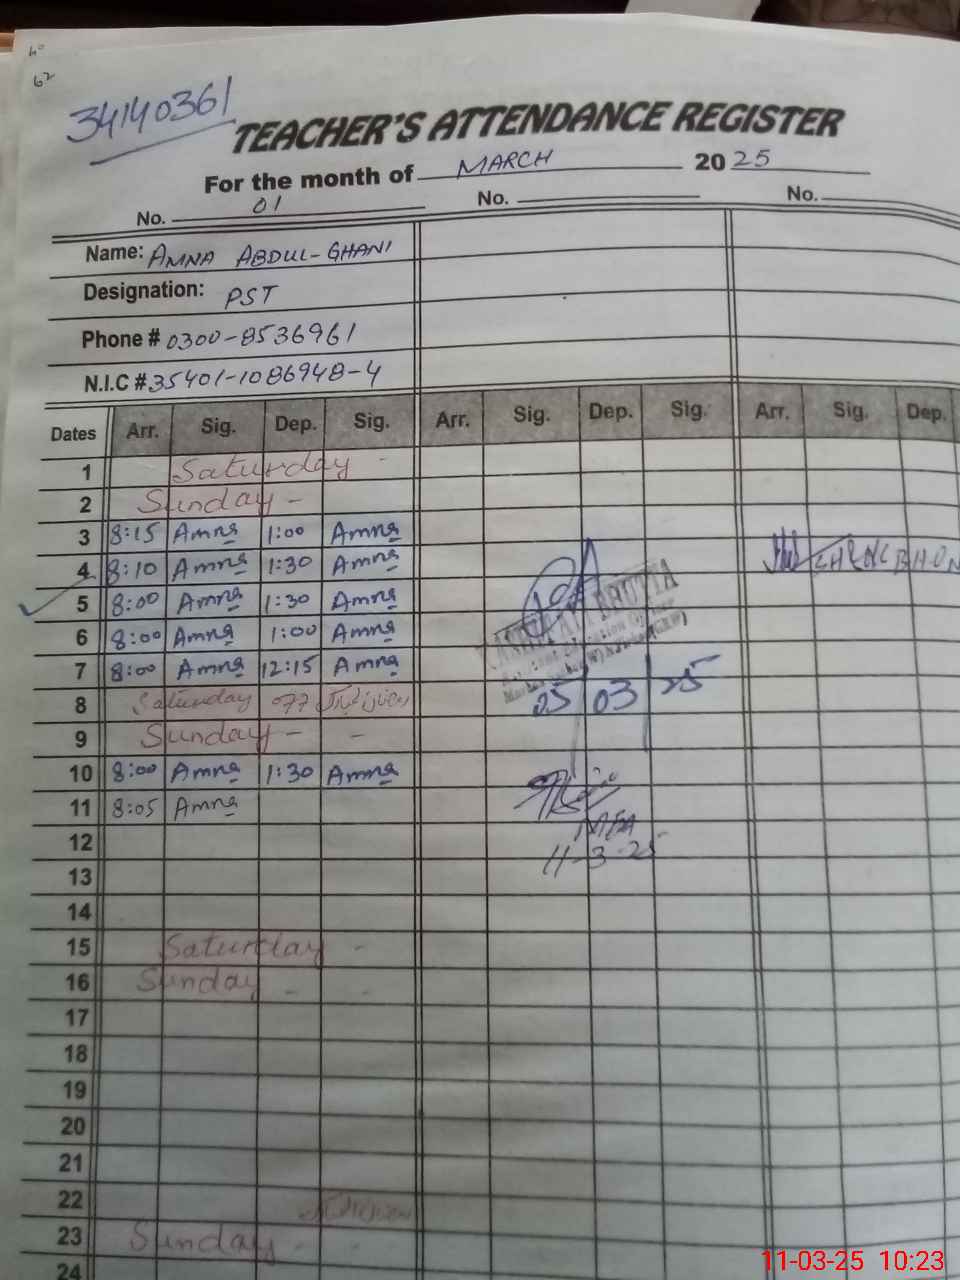 62
34140361
TEACHER'S ATTENDANCE REGISTER
For the month of MARCH 2025
No. 01 No. No.
Name: AMNA ABDUL-GHANI
Designation: PST
Phone # 0300-8536961
N.I.C # 35401-1086948-4
Dates Arr. Sig. Dep. Sig. Arr. Sig. Dep. Sig. Arr. Sig. Dep.
1 Saturday -
2 Sunday -
3 8:15 Amna 1:00 Amna
4 8:10 Amna 1:30 Amna
5 8:00 Amna 1:30 Amna
6 8:00 Amna 1:00 Amna
7 8:00 Amna 12:15 Amna
8 Saturday
05/03/25
9 Sunday - -
10 8:00 Amna 1:30 Amna
11 8:05 Amna
MEA
12
11-3-25
13
14
15 Saturday -
16 Sunday - -
17
18
19
20
21
22
23 Sunday - -
24
11-03-25 10:23